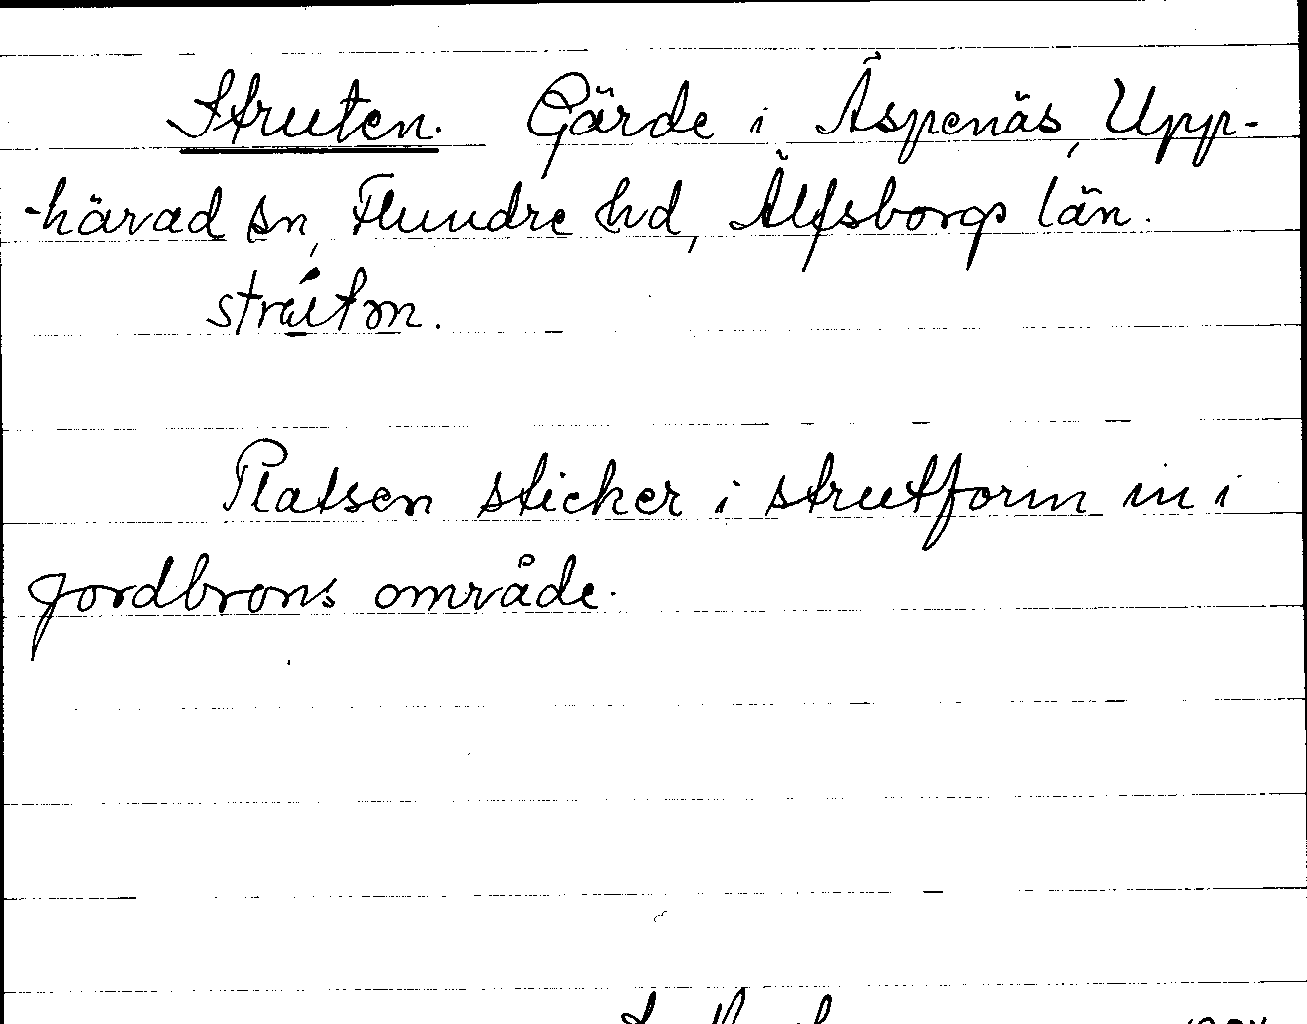 Struten. Gärde i Äspenäs, Upp-
-härad sn, Flundre hd, Älfsborgs län.
Platsen sticker i strutform in i
Jordbrons område.